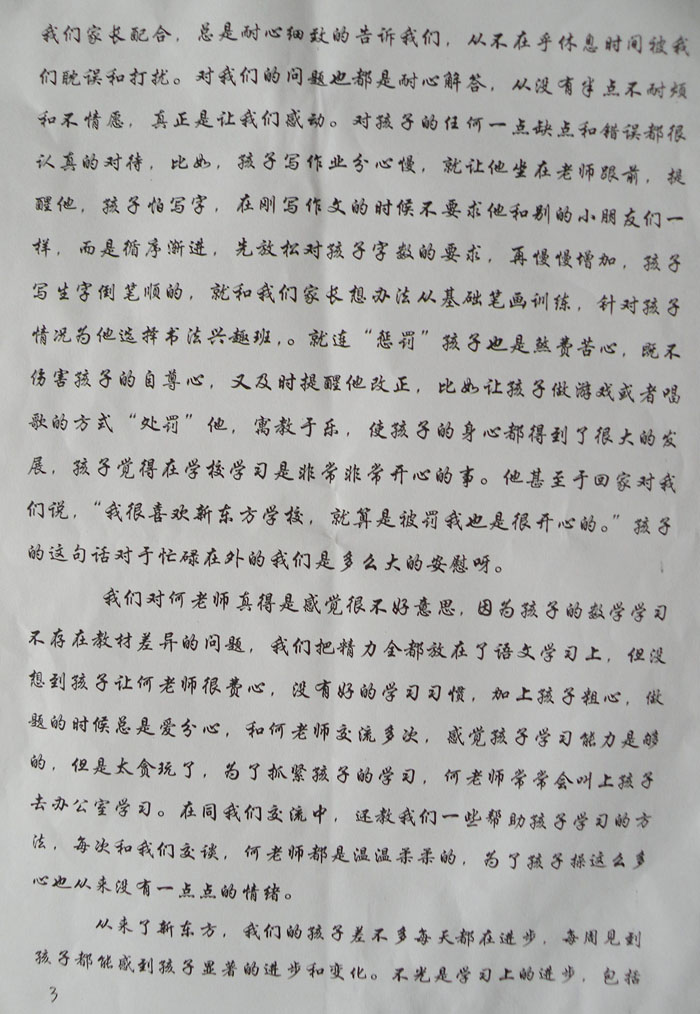 我们家长配合，总是耐心细致的告诉我们，从不在乎休息时间被我
们耽误和打扰。对我们的问题也都是耐心解答，从没有半点不耐烦
和不情愿，真正是让我们感动。对孩子的任何一点缺点和错误都很
认真的对待，比如，孩子写作业分心慢，就让他坐在老师跟前，提
醒他，孩子怕写字，在刚写作文的时候不要求他和别的小朋友们一
样，而是循序渐进，先放松对孩子字数的要求，再慢慢增加，孩子
写生字倒笔顺的，就和我们家长想办法从基础笔画训练，针对孩子
情况为他选择书法兴趣班，。就连“惩罚”孩子也是煞费苦心，既不
伤害孩子的自尊心，又及时提醒他改正，比如让孩子做游戏或者唱
歌的方式“处罚”他，寓教于乐，使孩子的身心都得到了很大的发
展，孩子觉得在学校学习是非常非常开心的事。他甚至于回家对我
们说，“我很喜欢新东方学校，就算是被罚我也是很开心的。”孩子
的这句话对于忙碌在外的我们是多么大的安慰呀。
我们对何老师真得是感觉很不好意思，因为孩子的数学学习
不存在教材差异的问题，我们把精力全都放在了语文学习上，但没
想到孩子让何老师很费心，没有好的学习习惯，加上孩子粗心，做
题的时候总是爱分心，和何老师交流多次，感觉孩子学习能力是够
的，但是太贪玩了，为了抓紧孩子的学习，何老师常常会叫上孩子
去办公室学习。在同我们交流中，还教我们一些帮助孩子学习的方
法，每次和我们交谈，何老师都是温温柔柔的，为了孩子操这么多
心也从来没有一点点的情绪。
从来了新东方，我们的孩子差不多每天都在进步，每周见到
孩子都能感到孩子显著的进步和变化。不光是学习上的进步，包括
3